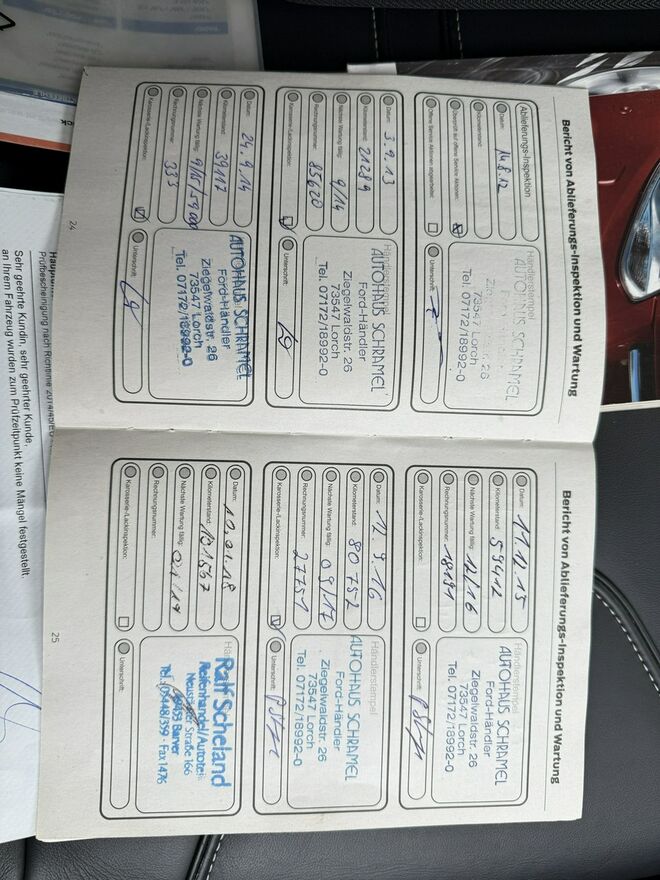 Bericht von Ablieferungs-Inspektion und Wartung
Ablieferungs-Inspektion
Datum: 14.8.12
Kilometerstand:
Überprüft auf offene Service Aktionen:
Offene Service Aktionen abgearbeitet:
Händlerstempel
AUTOHAUS SCHRAMEL
73547 Lorch
Tel. 07172/18992-0
Unterschrift:
Datum: 3.9.13
Kilometerstand: 21289
Nächste Wartung fällig: 9/14
Rechnungsnummer: 85620
Karosserie-/Lackinspektion:
Händlerstempel
AUTOHAUS SCHRAMEL
Ford-Händler
Ziegelwaldstr. 26
73547 Lorch
Tel. 07172/18992-0
Unterschrift:
Datum: 24.9.14
Kilometerstand: 39117
Nächste Wartung fällig: 9/15/59000
Rechnungsnummer: 333
Karosserie-/Lackinspektion:
AUTOHAUS SCHRAMEL
Ford-Händler
Ziegelwaldstr. 26
73547 Lorch
Tel. 07172/18992-0
Unterschrift:
24
Bericht von Ablieferungs-Inspektion und Wartung
Datum: 11.12.15
Kilometerstand: 59412
Nächste Wartung fällig: 12/16
Rechnungsnummer: 18191
Karosserie-/Lackinspektion:
Händlerstempel
AUTOHAUS SCHRAMEL
Ford-Händler
Ziegelwaldstr. 26
73547 Lorch
Tel. 07172/18992-0
Unterschrift:
Datum: 12.9.16
Kilometerstand: 80752
Nächste Wartung fällig: 09/17
Rechnungsnummer: 27751
Karosserie-/Lackinspektion:
Händlerstempel
AUTOHAUS SCHRAMEL
Ford-Händler
Ziegelwaldstr. 26
73547 Lorch
Tel. 07172/18992-0
Unterschrift:
Datum: 10.01.18
Kilometerstand: 101567
Nächste Wartung fällig: 01/19
Rechnungsnummer:
Karosserie-/Lackinspektion:
Ralf Scheland
Reifenhandel/Autoteile
Straße 166
49453 Barver
Tel. (05448/359 · Fax 1476
Unterschrift:
25
Prüfbescheinigung nach Richtlinie 2014/45/EU
Sehr geehrte Kundin, sehr geehrter Kunde,
an Ihrem Fahrzeug wurden zum Prüfzeitpunkt keine Mängel festgestellt.